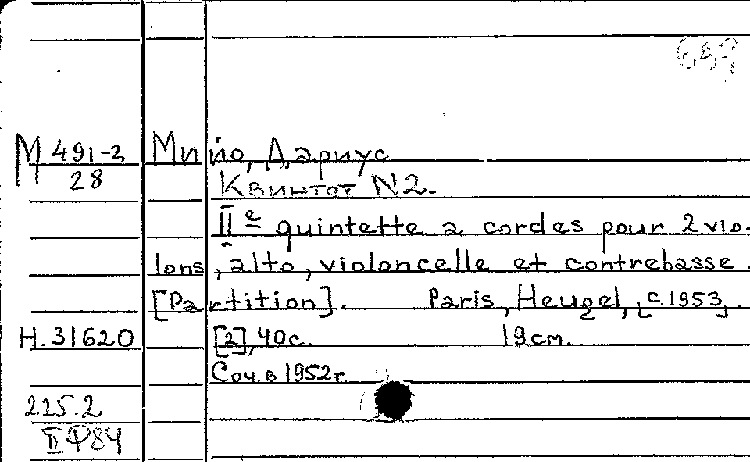 М 491-2
28
Мийо, Дариус
Квинтет N2.
IIe quintette a cordes pour 2 vio-
lons, alto, violoncelle et contrebasse.
[Partition]. Paris, Heugel, [c.1953].
H.31620 [2], 40с. 19см.
Соч. в 1952г.
225.2
II Ф84